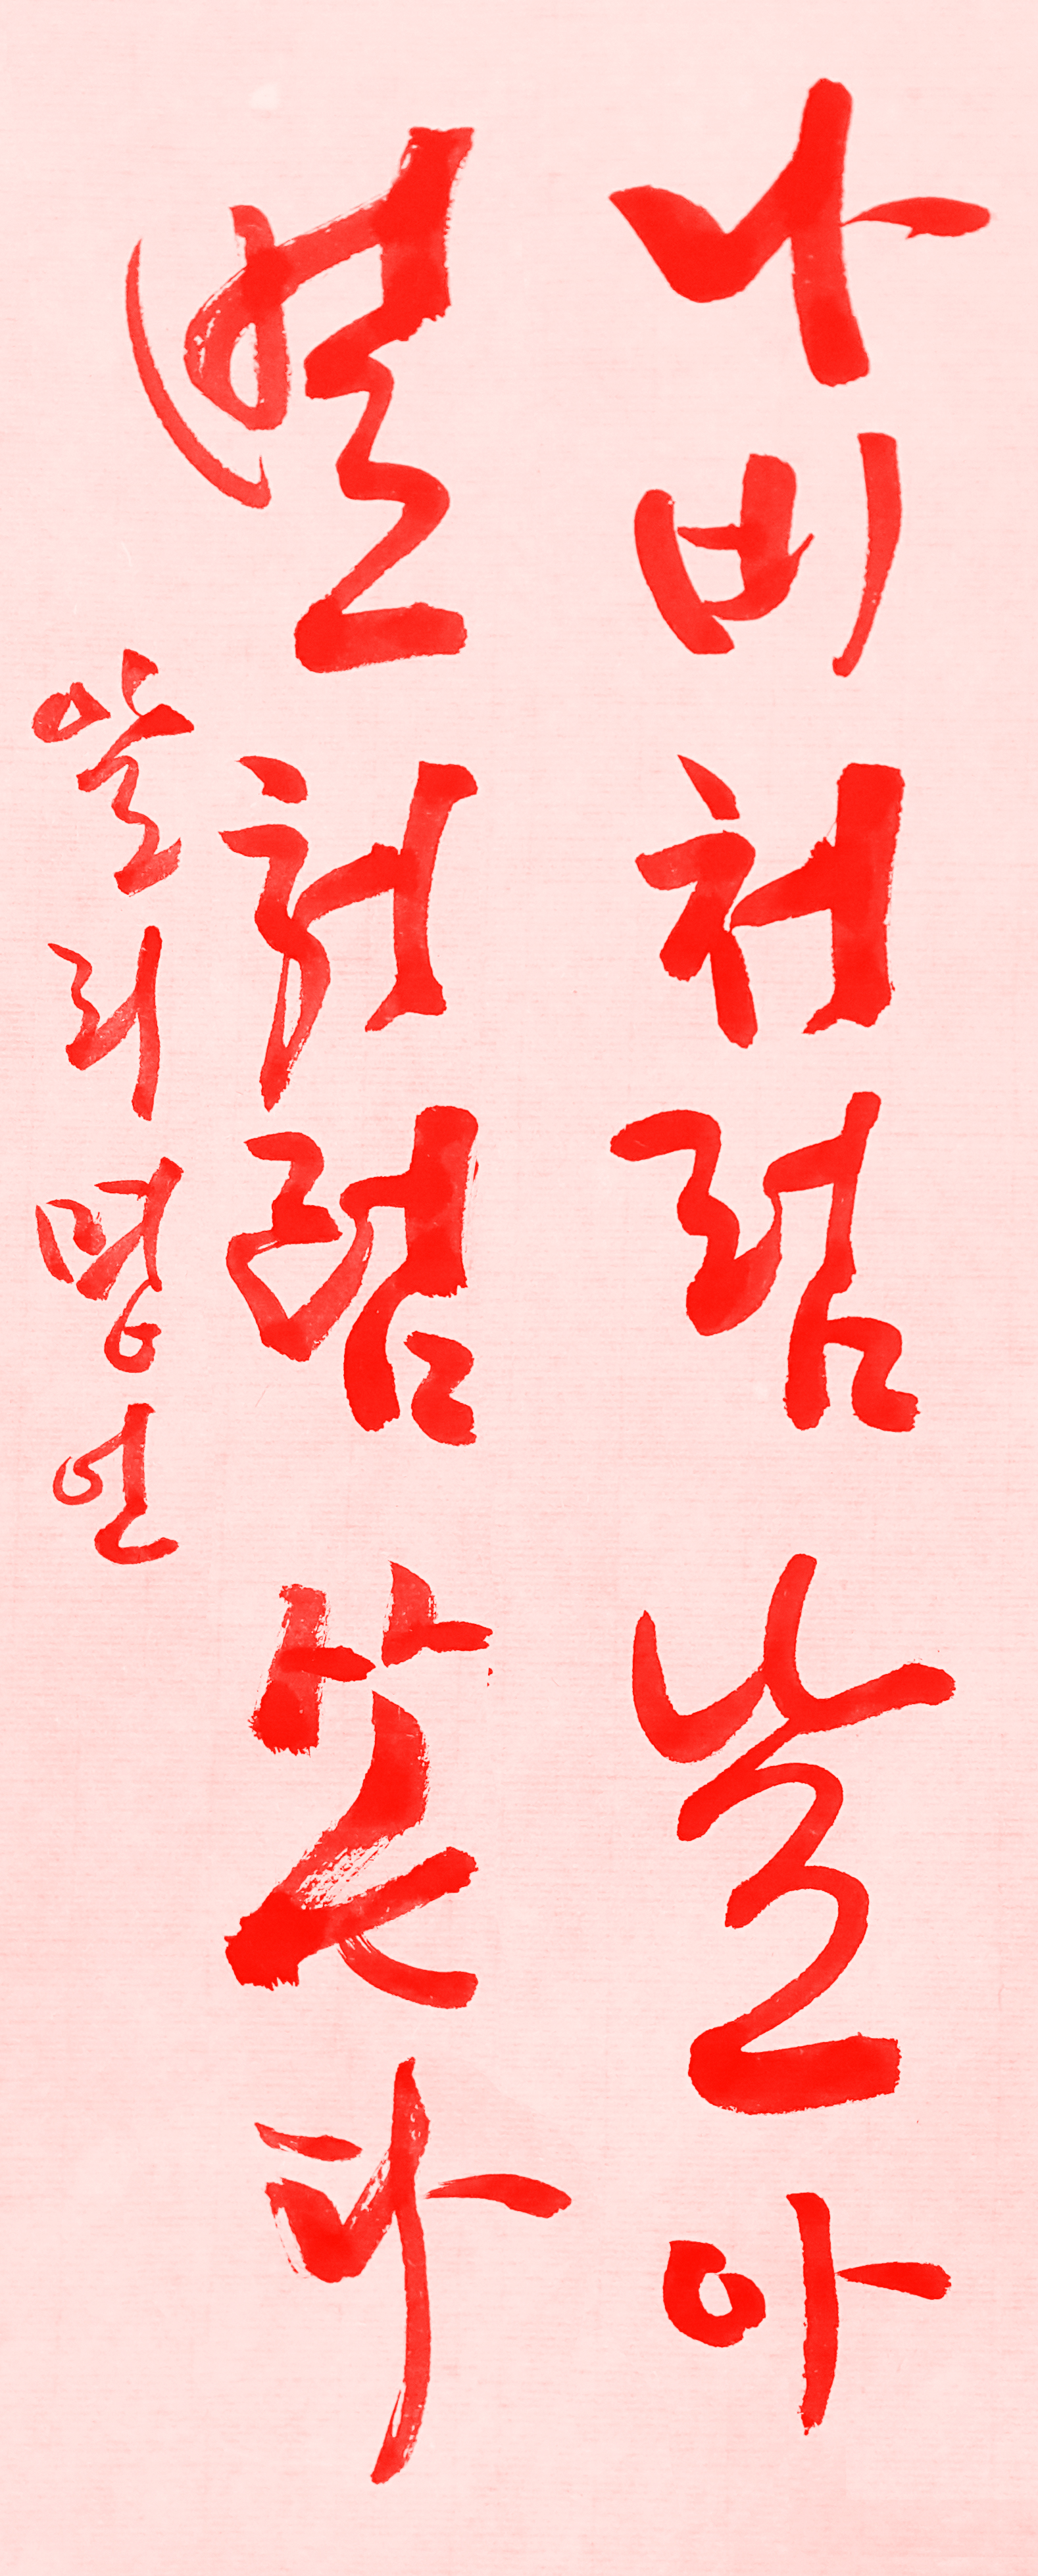 나비처럼 날아
벌처럼 쏜다
알리 명언